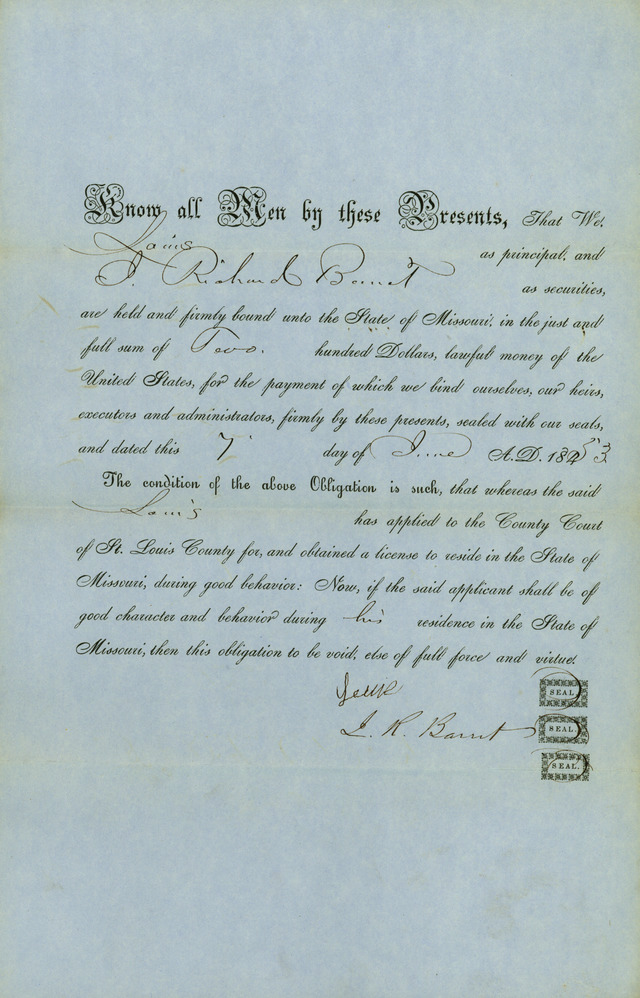 Know all Men by these Presents, That We,
Louis as principal, and
J. Richard Barret as securities,
are held and firmly bound unto the State of Missouri, in the just and
full sum of Two hundred Dollars, lawful money of the
United States, for the payment of which we bind ourselves, our heirs,
executors and administrators, firmly by these presents, sealed with our seals,
and dated this 7 day of June A.D. 1853
The condition of the above Obligation is such, that whereas the said
Louis has applied to the County Court
of St. Louis County for, and obtained a license to reside in the State of
Missouri, during good behavior: Now, if the said applicant shall be of
good character and behavior during his residence in the State of
Missouri, then this obligation to be void, else of full force and virtue.
SEAL
J. R. Barret SEAL
SEAL.